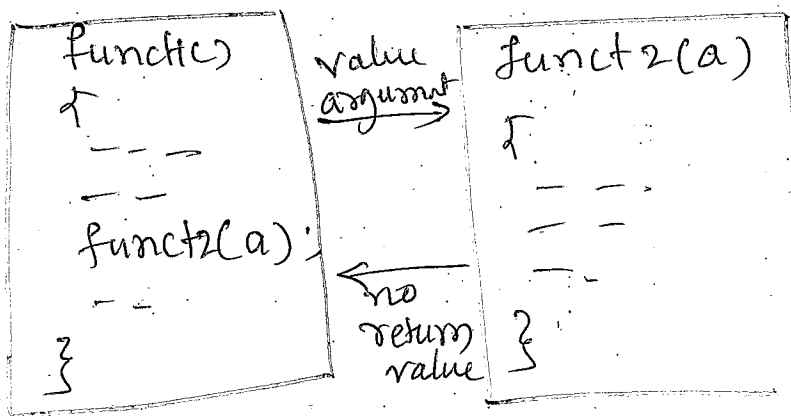 funct1()
{
funct2(a);
}
value
argument
no
return
value
funct2(a)
{
}